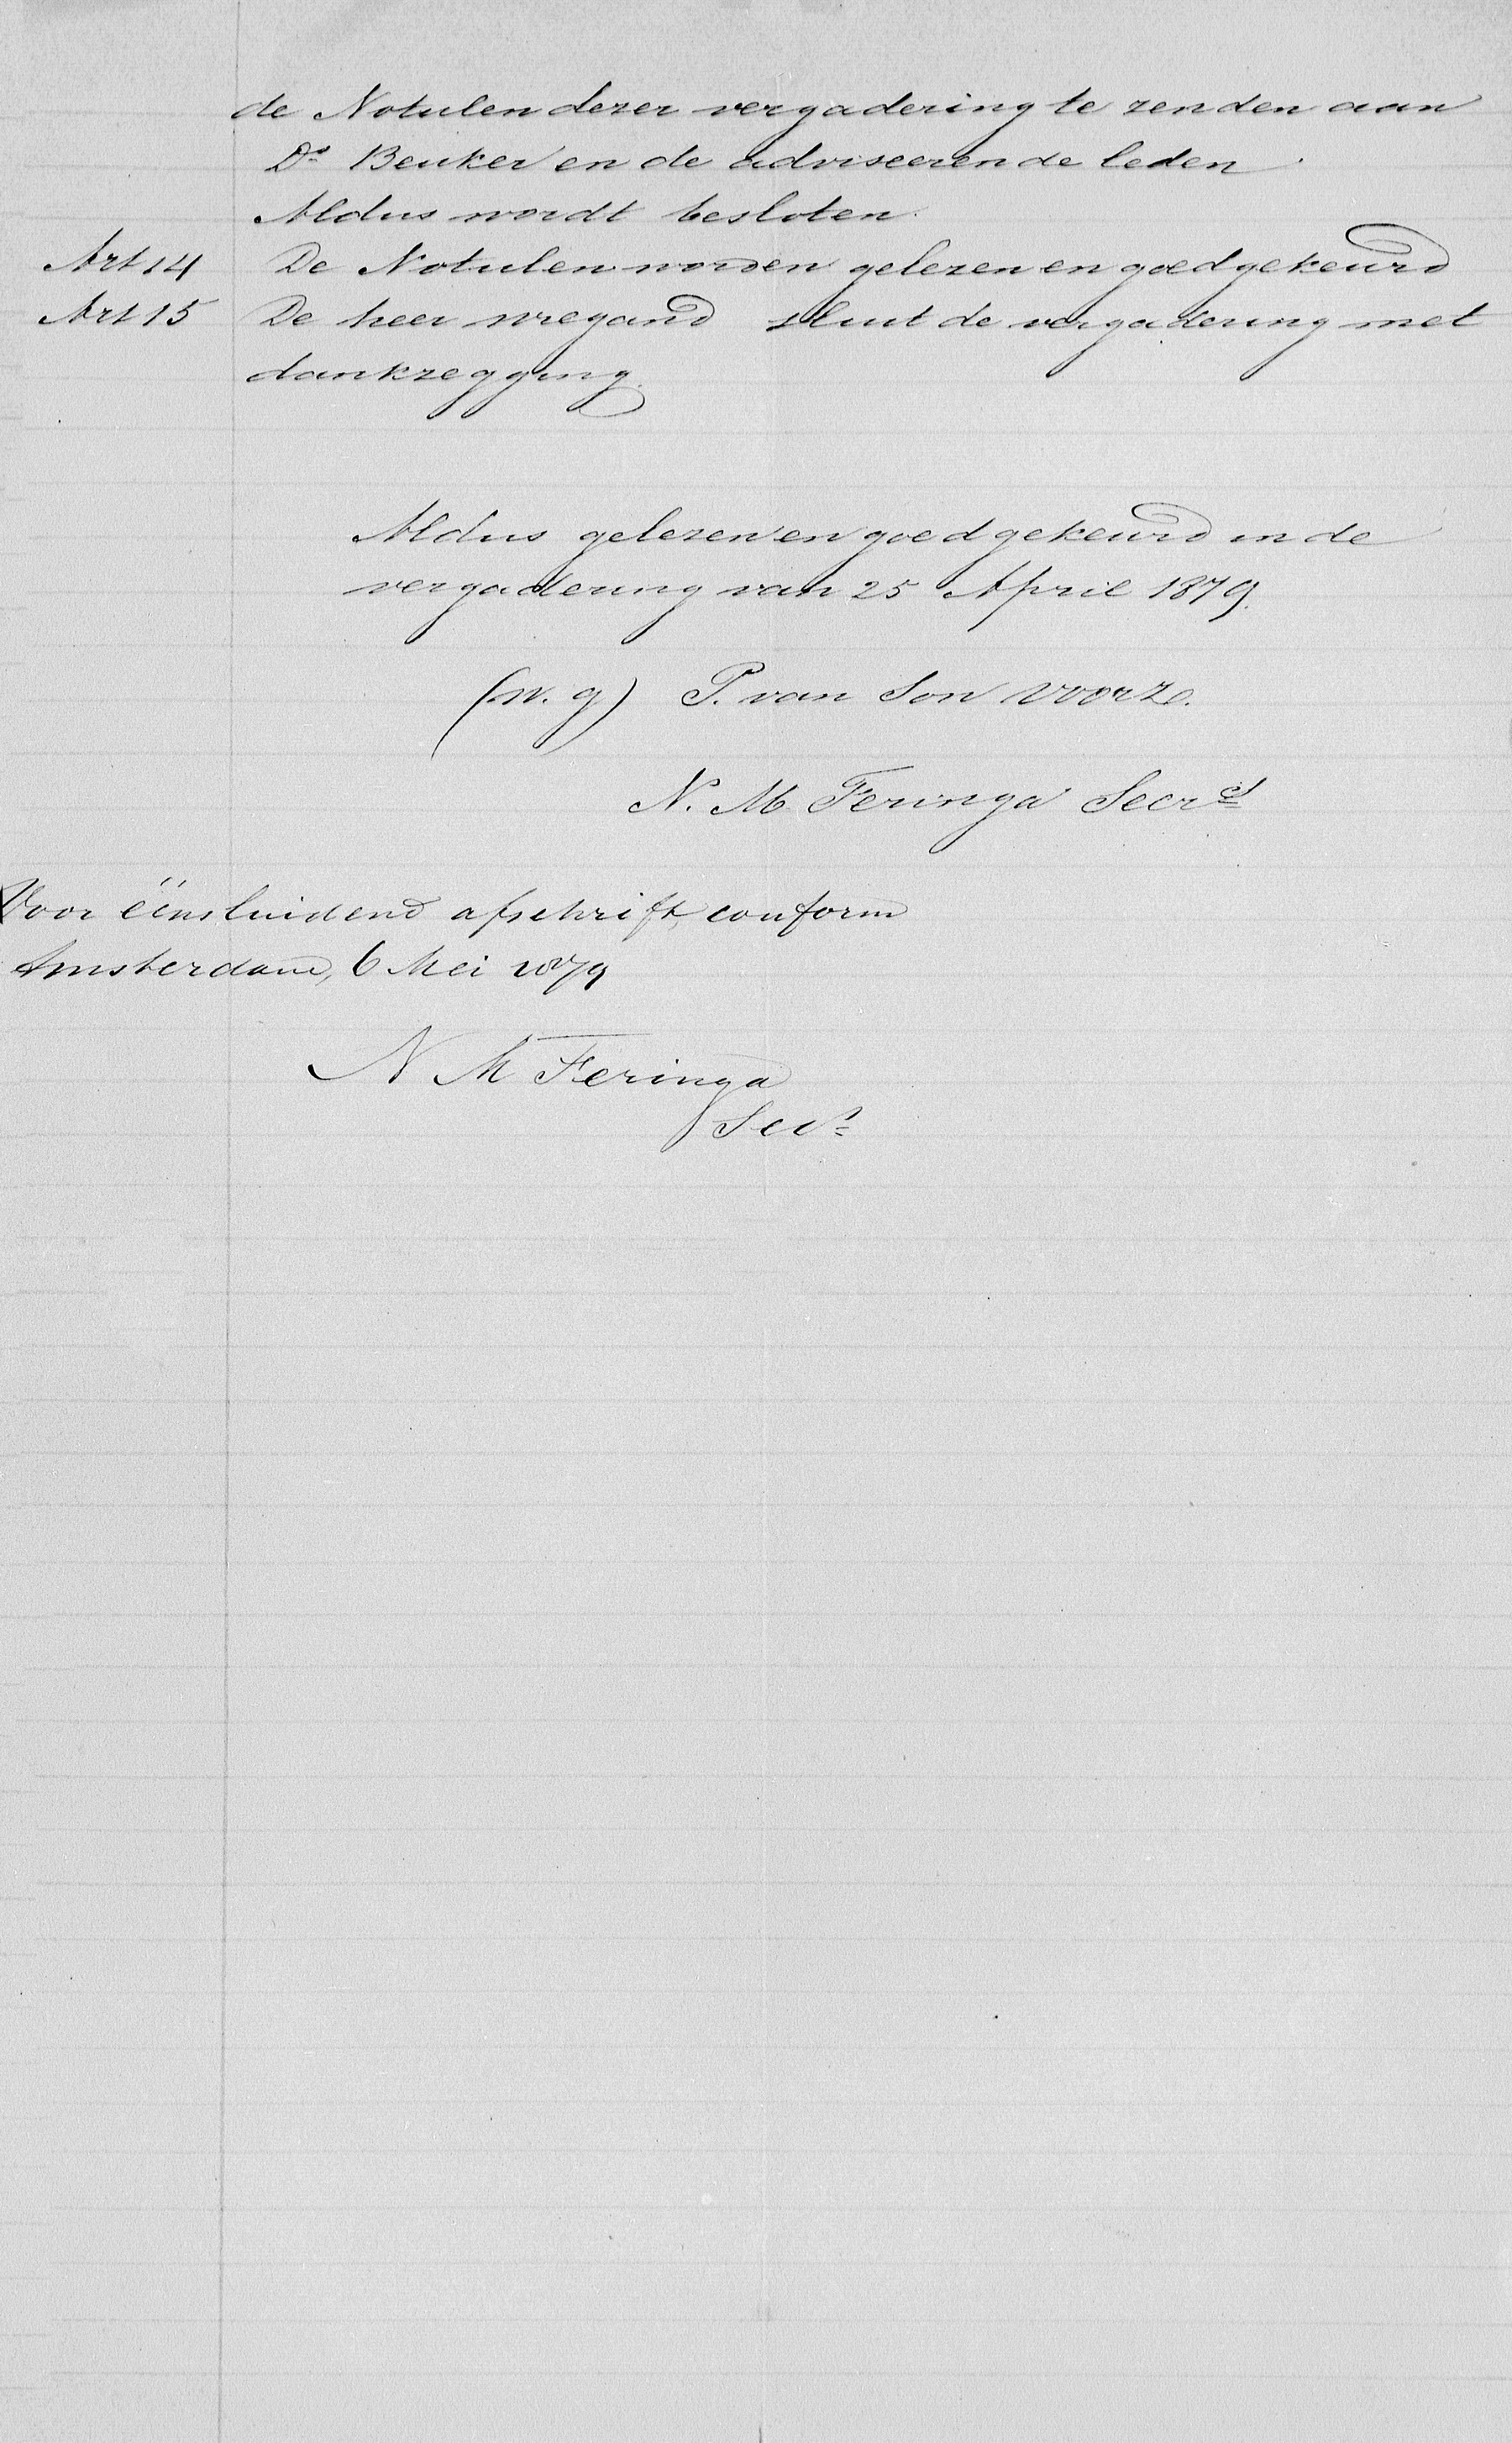 de Notulen dezer vergadering te zenden aan
Ds Beuker en de adviseerende leden.
Aldus wordt besloten.
Art 14 De Notulen worden gelezen en goedgekeurd
Art 15 De heer Wiegand sluit de vergadering met
dankzegging.
Aldus gelezen en goedgekeurd in de
vergadering van 25 April 1879.
(w. g) P. van Son voorz.
N. M. Feringa Secrs
Voor éénsluidend afschrift, conform
Amsterdam, 6 Mei 1879
N M Feringa
Secs